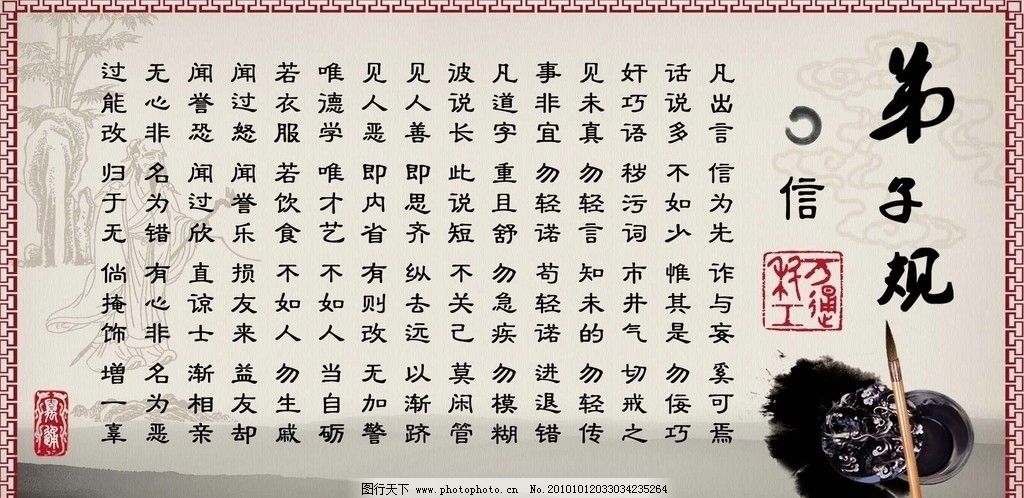 弟子规
信
凡出言 信为先 诈与妄 奚可焉
话说多 不如少 惟其是 勿佞巧
奸巧语 秽污词 市井气 切戒之
见未真 勿轻言 知未的 勿轻传
事非宜 勿轻诺 苟轻诺 进退错
凡道字 重且舒 勿急疾 勿模糊
彼说长 此说短 不关己 莫闲管
见人善 即思齐 纵去远 以渐跻
见人恶 即内省 有则改 无加警
唯德学 唯才艺 不如人 当自砺
若衣服 若饮食 不如人 勿生戚
闻过怒 闻誉乐 损友来 益友却
闻誉恐 闻过欣 直谅士 渐相亲
无心非 名为错 有心非 名为恶
过能改 归于无 倘掩饰 增一辜
图行天下 www.photophoto.cn No.20101012033034235264